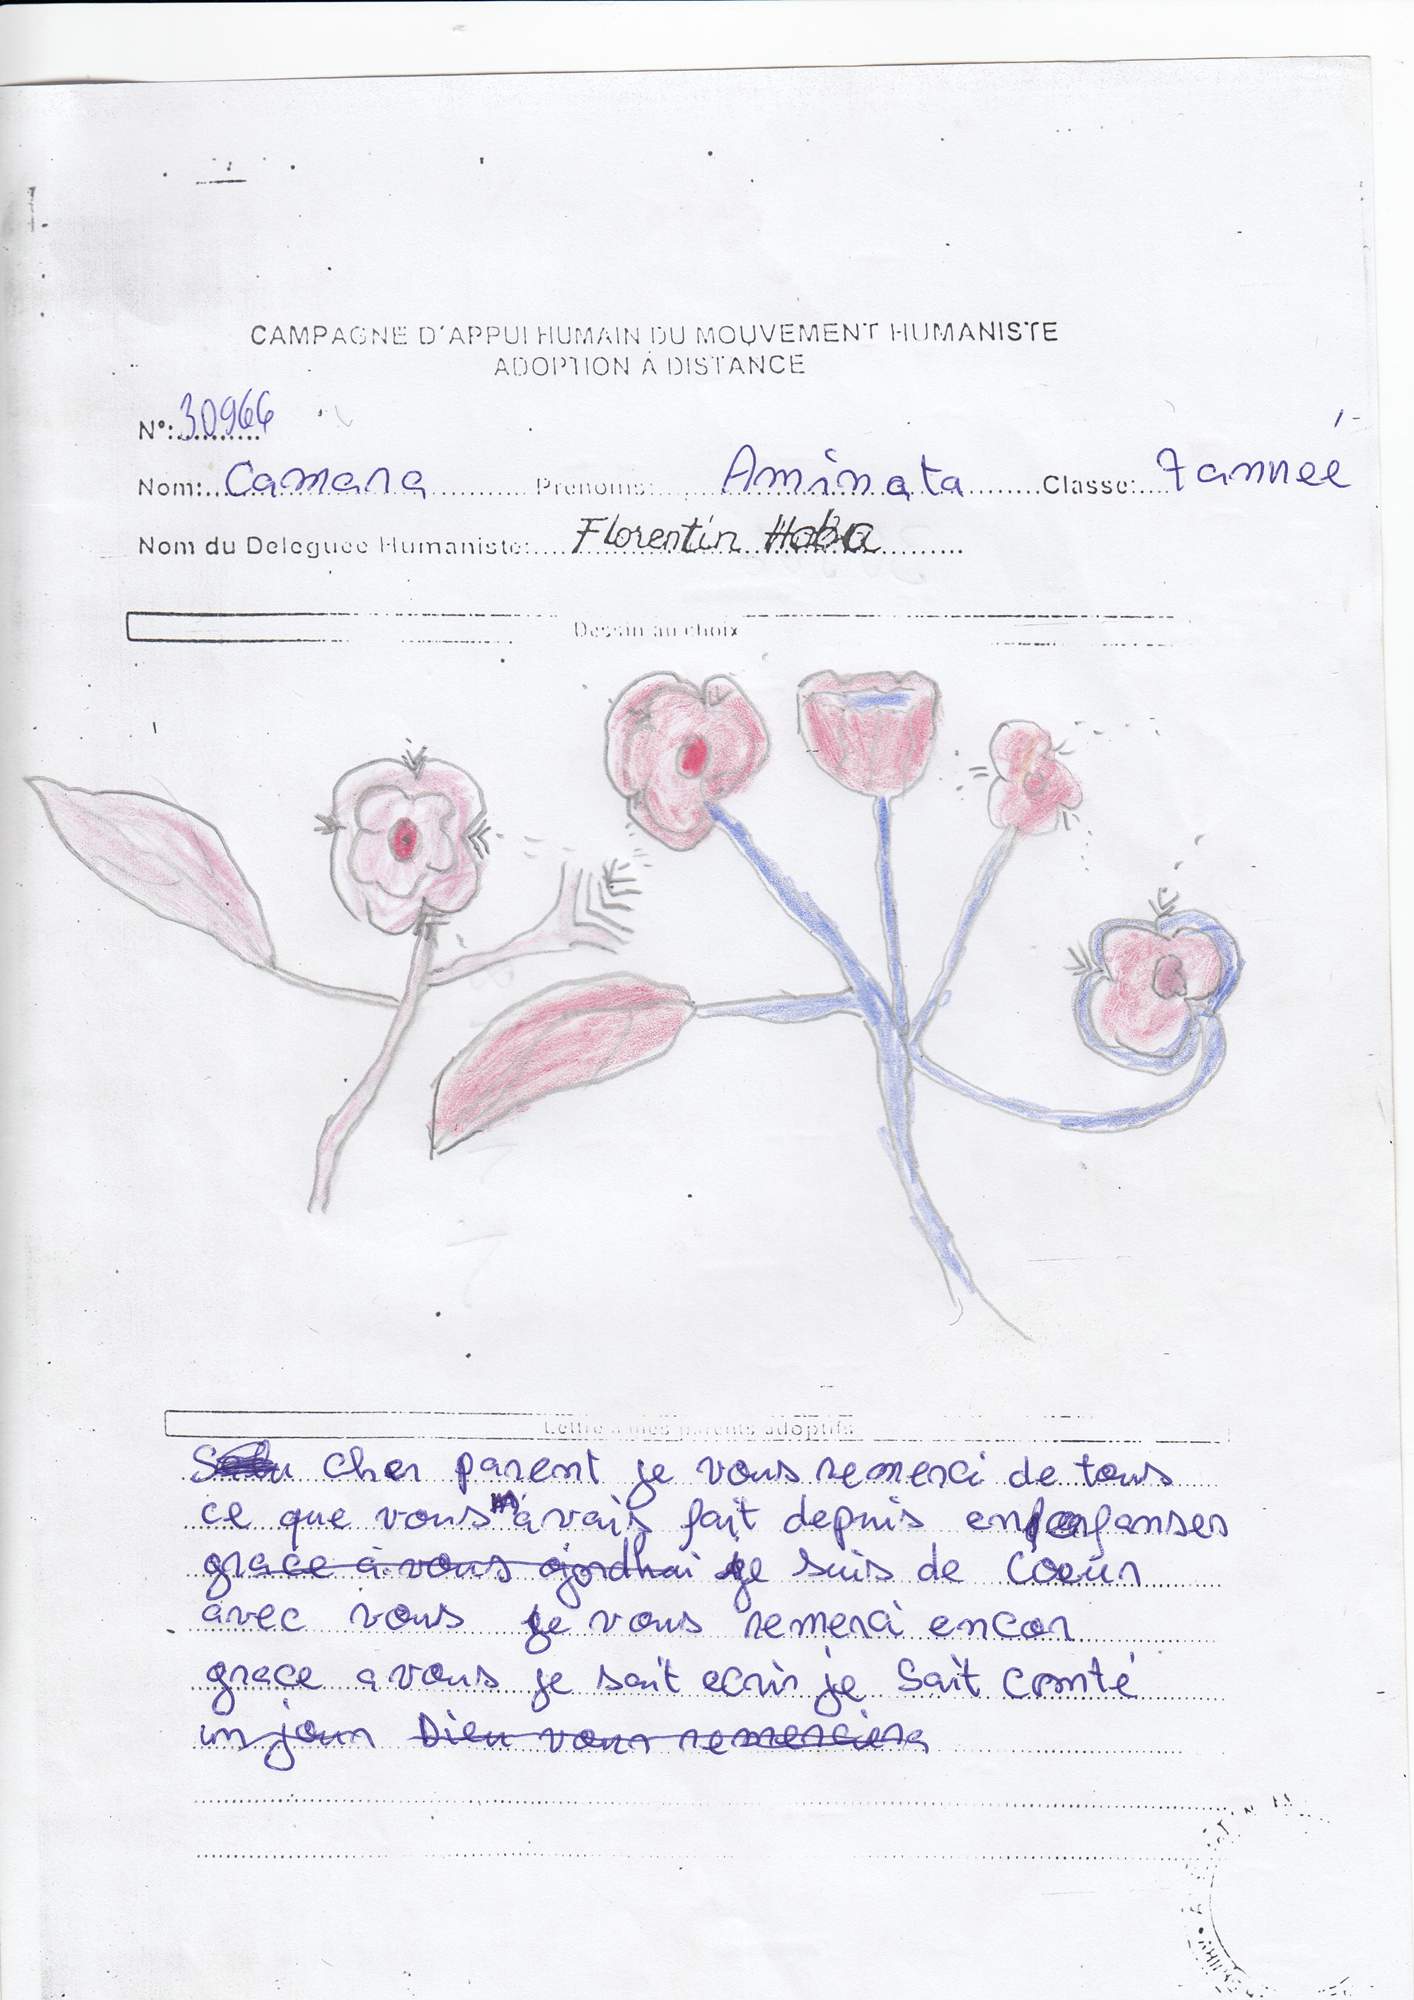 CAMPAGNE D'APPUI HUMAIN DU MOUVEMENT HUMANISTE
ADOPTION À DISTANCE
N°: 30966
Nom: Camara Prénoms: Aminata Classe: 7 année
Nom du Deleguée Humaniste: Florentin Haba
Dessin au choix
Lettre à mes parents adoptifs
cher parent je vous remerci de tous
ce que vous m'avais fait depuis enfanses
grace à vous ojordhai je suis de coeur
avec vous je vous remerci encor
grace a vous je sait ecrir je sait comté
un jour Dieu vous remerciera